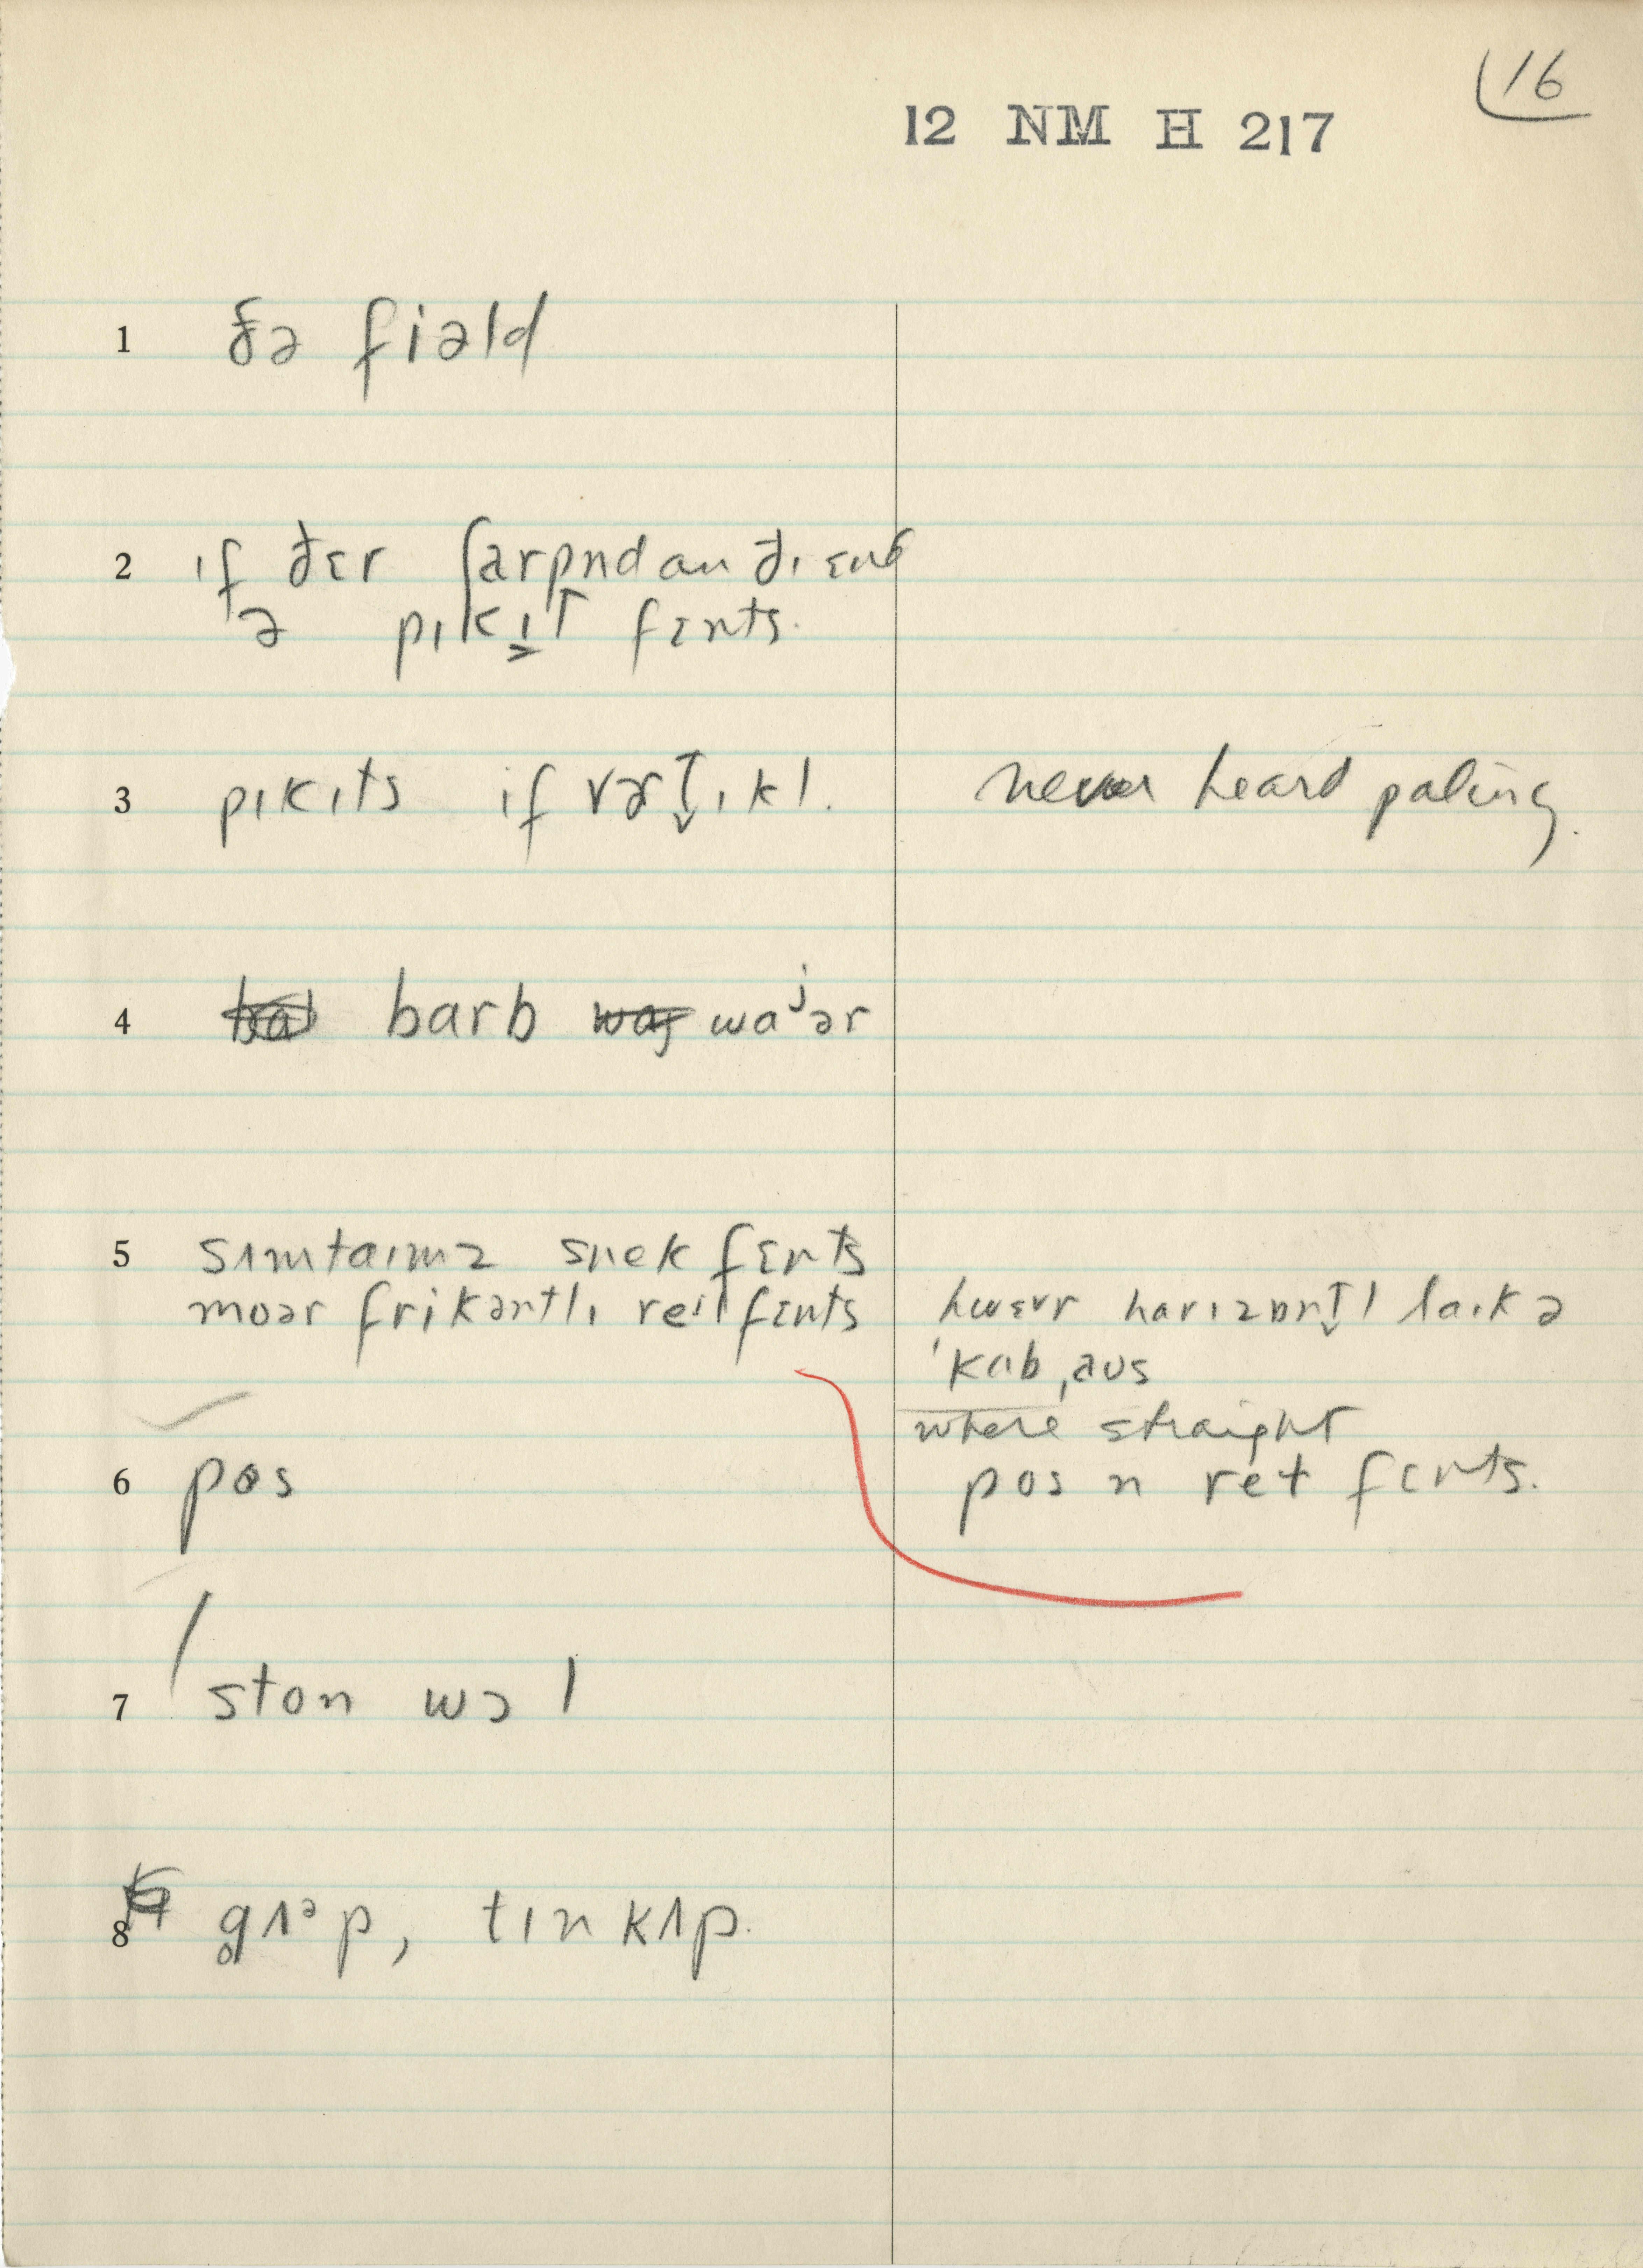 16
12 NM H 217
1 ðə fiəld
2 ɪf ðɛr ʃarpnd an ði ɛnd
ə pɪkɪt fɛnts.
3 pɪkɪts if vɚt̬ɪkl. never heard paling.
4 barb waʲər
5 sʌmtaɪmz snek fɛnts
moər frikəntlɪ reɪl fɛnts hwɛvr harɪzɒnt̬l laɪk ə
ˈkɑbˌaus
where straight
6 pos pos n ret fɛnts.
7 ston wɔl
8 gʌᵊp, tɪn kʌp.